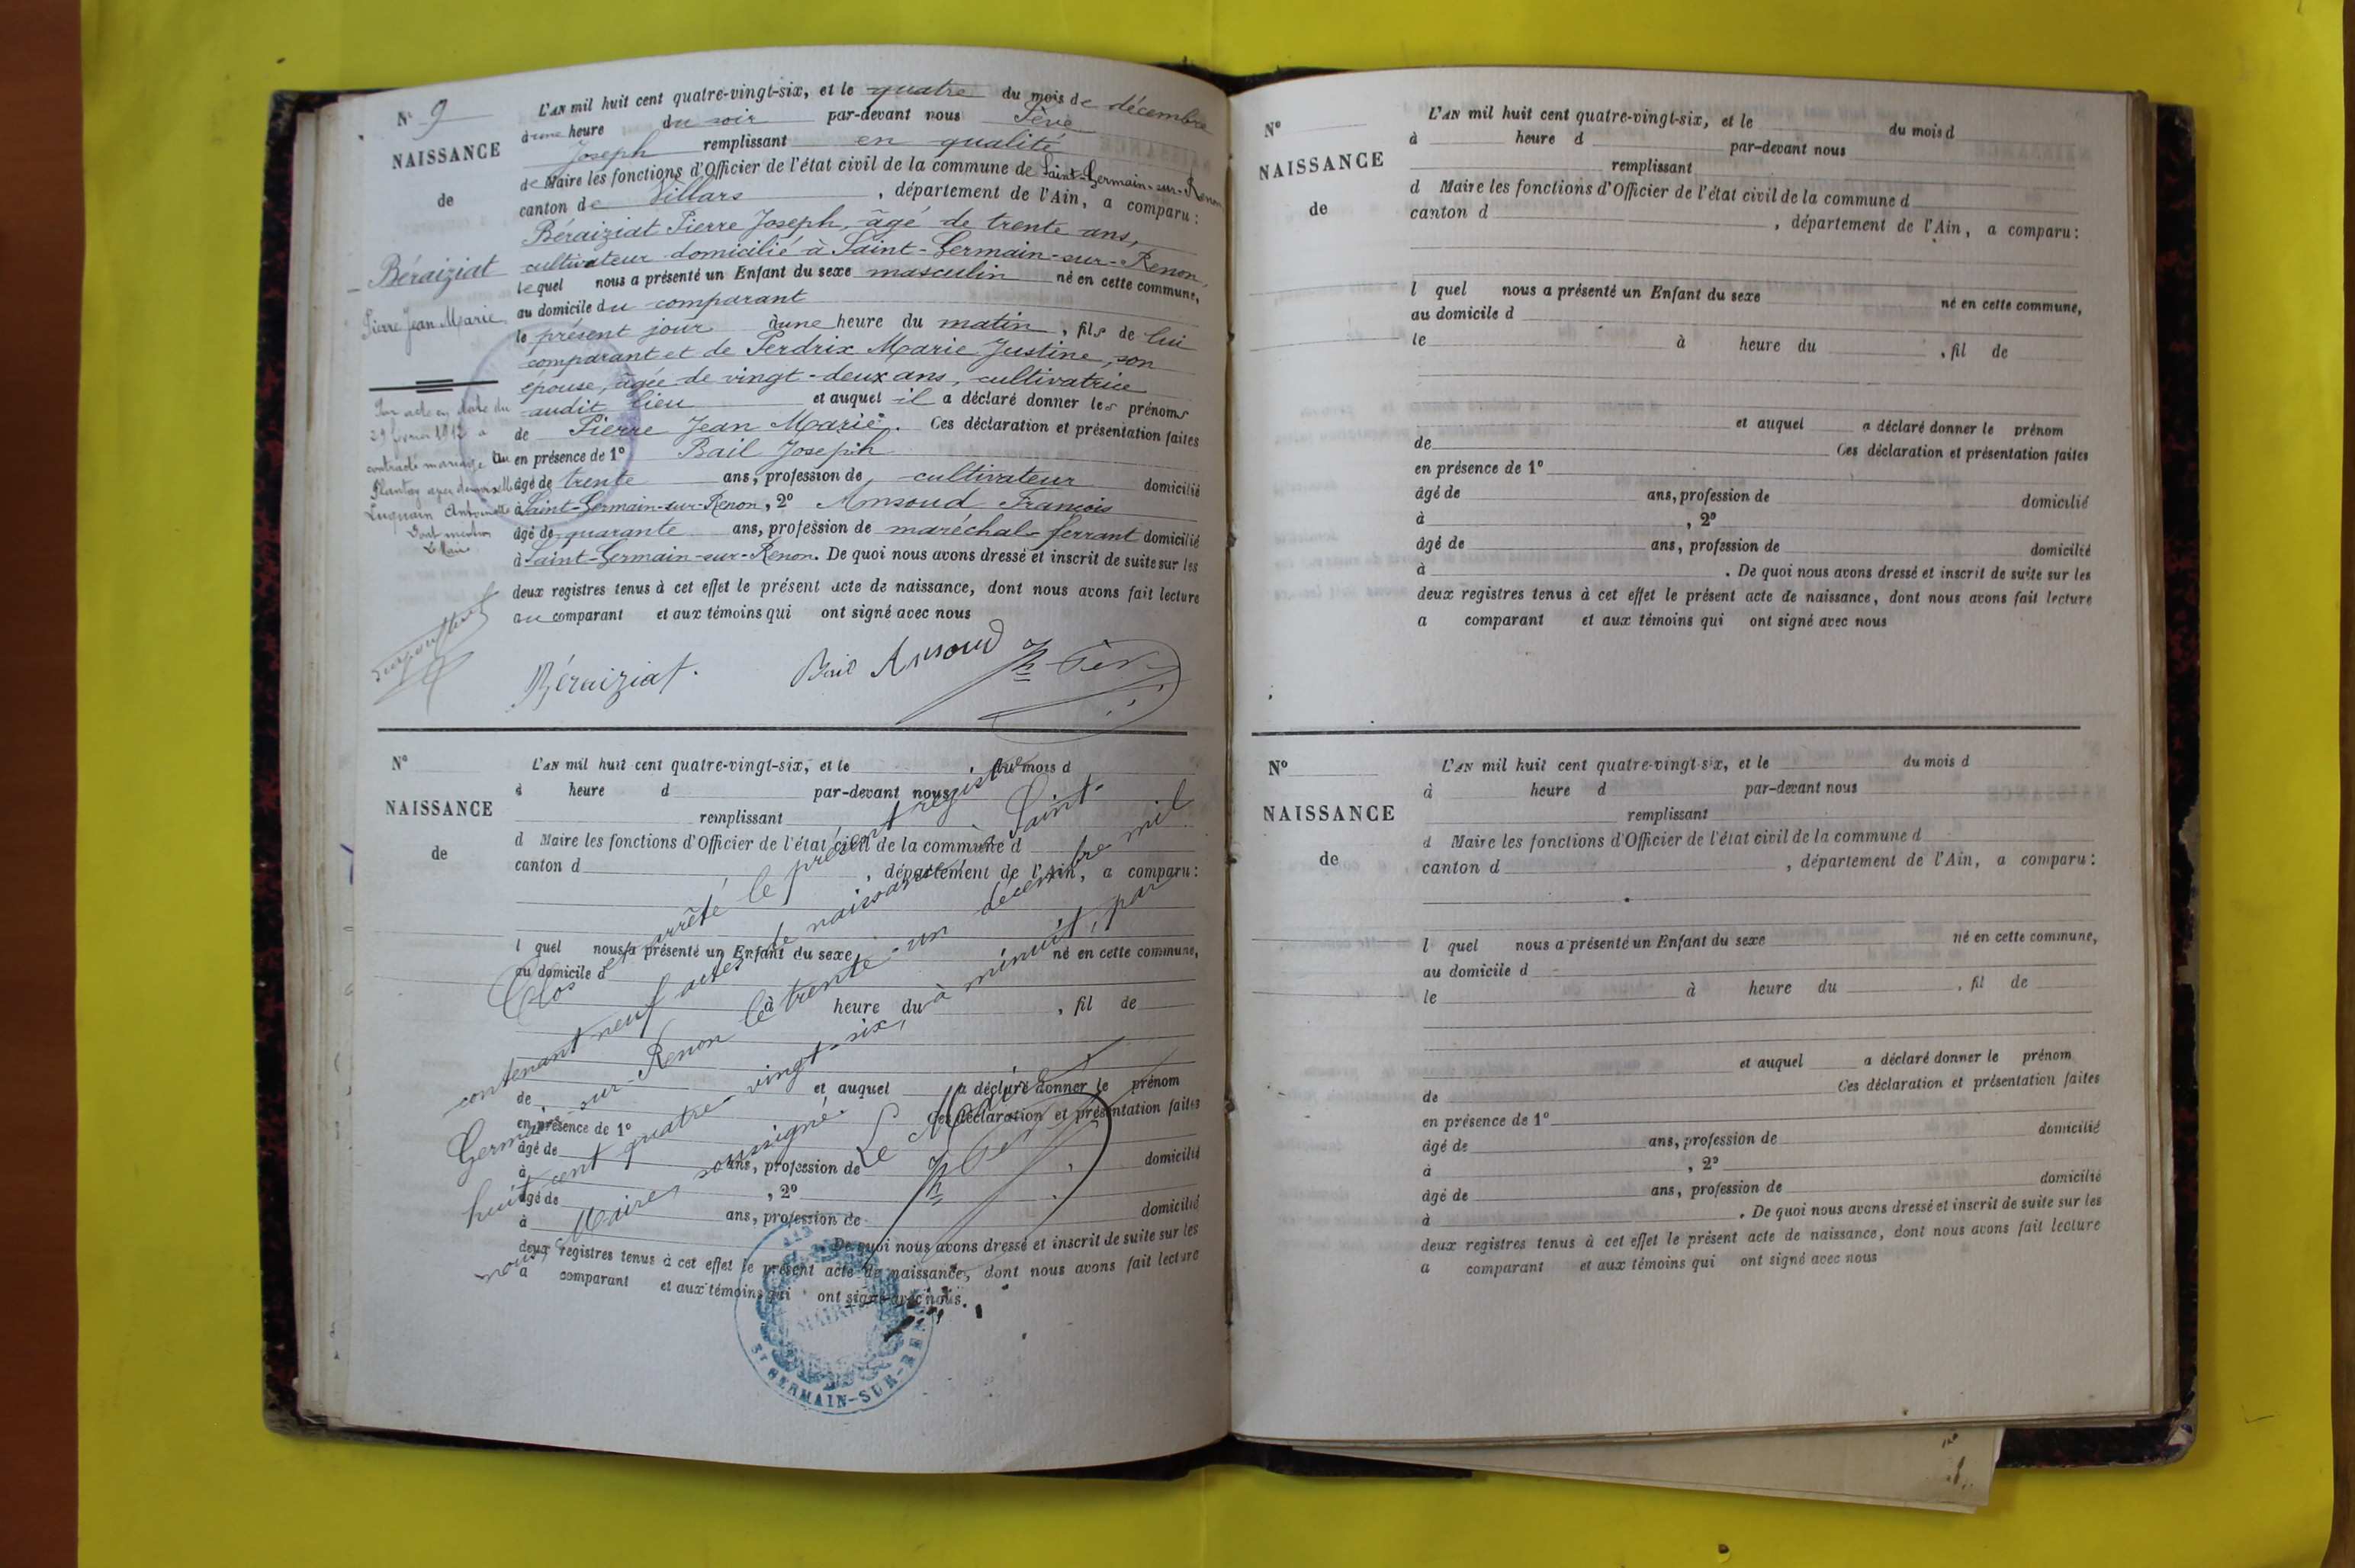 N° 9
NAISSANCE
de
Béraiziat
Pierre Jean Marie
Par acte en date du
29 février 1912 a
contracté mariage au
Plantay avec demoiselle
Luquain Antoinette
Dont mention
Le Maire
L'AN mil huit cent quatre-vingt-six, et le quatre du mois de décembre
à une heure du soir par-devant nous Fève
Joseph remplissant en qualité
de Maire les fonctions d'Officier de l'état civil de la commune de Saint-Germain-sur-Renon
canton de Villars, département de l'Ain, a comparu:
Béraiziat Pierre Joseph, âgé de trente ans,
cultivateur domicilié à Saint-Germain-sur-Renon,
lequel nous a présenté un Enfant du sexe masculin né en cette commune,
au domicile du comparant
le présent jour à une heure du matin, fils de lui
comparant et de Perdrix Marie Justine, son
épouse, âgée de vingt-deux ans, cultivatrice
audit lieu et auquel il a déclaré donner les prénoms
de Pierre Jean Marie. Ces déclaration et présentation faites
en présence de 1° Bail Joseph
âgé de trente ans, profession de cultivateur domicilié
à Saint-Germain-sur-Renon, 2° Ansoud François
âgé de quarante ans, profession de maréchal-ferrant domicilié
à Saint-Germain-sur-Renon. De quoi nous avons dressé et inscrit de suite sur les
deux registres tenus à cet effet le présent acte de naissance, dont nous avons fait lecture
au comparant et aux témoins qui ont signé avec nous
Béraiziat. Bail Ansoud Jh Fève
N°
NAISSANCE
de
L'AN mil huit cent quatre-vingt-six, et le du mois d
à heure d par-devant nous
remplissant
d Maire les fonctions d'Officier de l'état civil de la commune d
canton d , département de l'Ain, a comparu:
l quel nous a présenté un Enfant du sexe né en cette commune,
au domicile d
à heure du , fil de
et auquel a déclaré donner le prénom
de Ces déclaration et présentation faites
en présence de 1°
âgé de ans, profession de domicilié
à , 2°
âgé de ans, profession de domicilié
à . De quoi nous avons dressé et inscrit de suite sur les
deux registres tenus à cet effet le présent acte de naissance, dont nous avons fait lecture
a comparant et aux témoins qui ont signé avec nous.
Clos et arrêté le présent registre
contenant neuf actes de naissance à Saint-
Germain-sur-Renon le trente-un décembre mil
huit cent quatre-vingt-six, à minuit, par
nous Maire soussigné.
Le Maire
Jh Fève
MAIRIE
ST GERMAIN-SUR-RENON
N°
NAISSANCE
de
L'AN mil huit cent quatre-vingt-six, et le du mois d
à heure d par-devant nous
remplissant
d Maire les fonctions d'Officier de l'état civil de la commune d
canton d , département de l'Ain, a comparu:
l quel nous a présenté un Enfant du sexe né en cette commune,
au domicile d
le à heure du , fil de
et auquel a déclaré donner le prénom
de Ces déclaration et présentation faites
en présence de 1°
âgé de ans, profession de domicilié
à , 2°
âgé de ans, profession de domicilié
à . De quoi nous avons dressé et inscrit de suite sur les
deux registres tenus à cet effet le présent acte de naissance, dont nous avons fait lecture
a comparant et aux témoins qui ont signé avec nous
N°
NAISSANCE
de
L'AN mil huit cent quatre-vingt-six, et le du mois d
à heure d par-devant nous
remplissant
d Maire les fonctions d'Officier de l'état civil de la commune d
canton d , département de l'Ain, a comparu:
l quel nous a présenté un Enfant du sexe né en cette commune,
au domicile d
le à heure du , fil de
et auquel a déclaré donner le prénom
de Ces déclaration et présentation faites
en présence de 1°
âgé de ans, profession de domicilié
à , 2°
âgé de ans, profession de domicilié
à . De quoi nous avons dressé et inscrit de suite sur les
deux registres tenus à cet effet le présent acte de naissance, dont nous avons fait lecture
a comparant et aux témoins qui ont signé avec nous